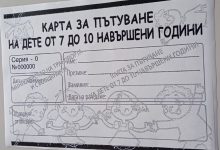 КАРТА ЗА ПЪТУВАНЕ
НА ДЕТЕ ОТ 7 ДО 10 НАВЪРШЕНИ ГОДИНИ
Серия - 0
№000000
Име
Презиме
Фамилия
КАРТА ЗА ПЪТУВАНЕ
НА ДЕТЕ ОТ 7 ДО 10 НАВЪРШЕНИ ГОДИНИ